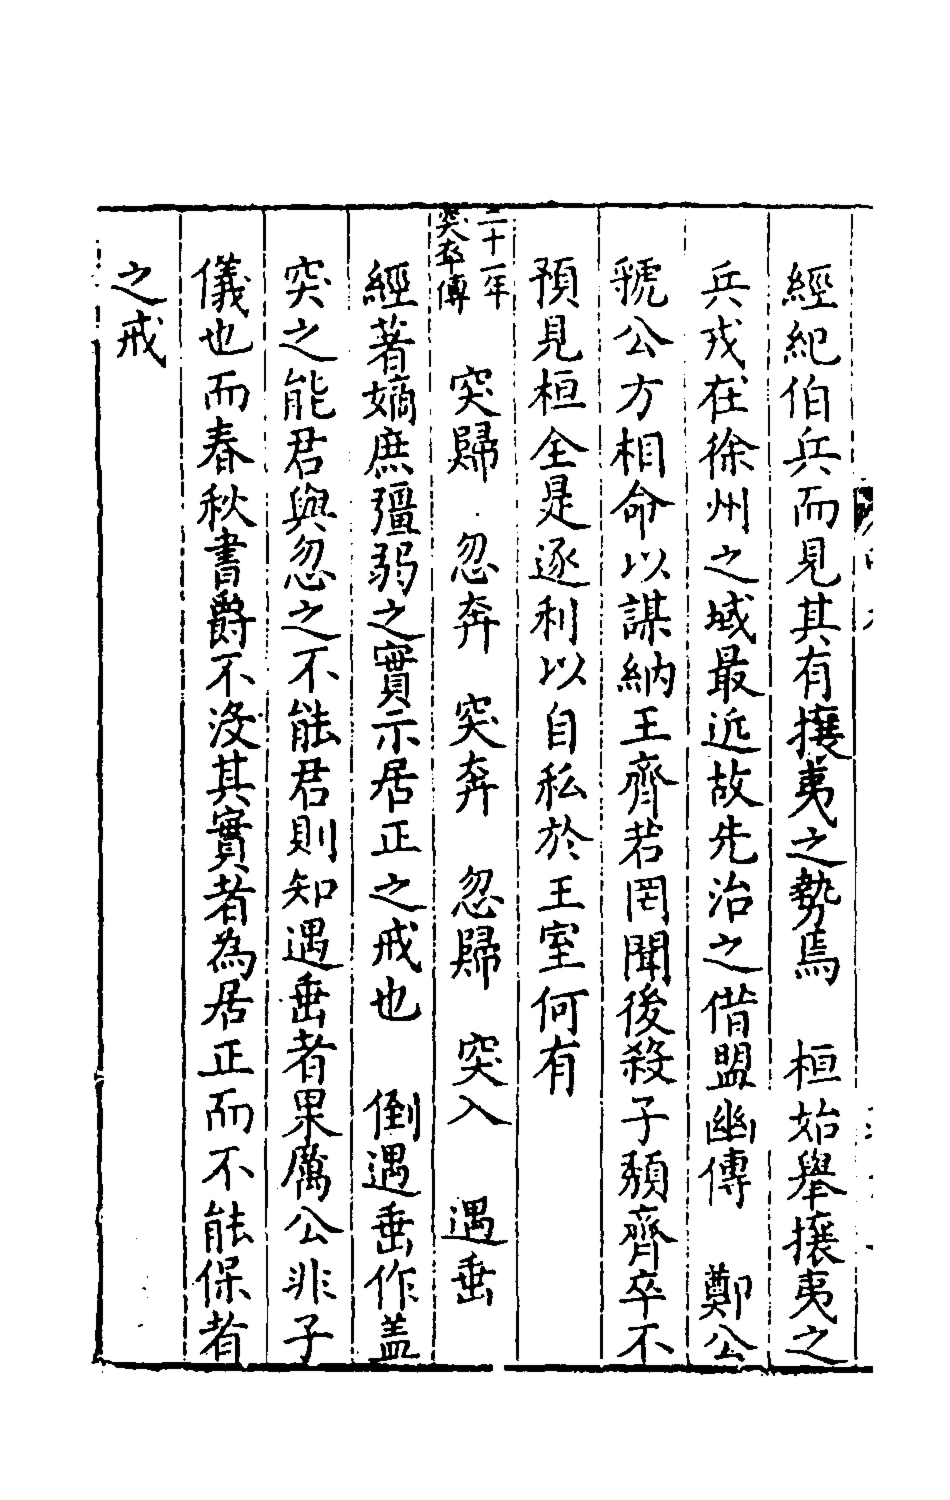 經紀伯兵而見其有攘夷之勢焉　桓始舉攘夷之
兵戎在徐州之域最近故先治之借盟幽傳　鄭公
虢公方相命以謀納王齊若罔聞後殺子頹齊卒不
預見桓全是逐利以自私於王室何有
二十一年
突卒傳
突歸　忽奔　突奔　忽歸　突入　遇垂
經著嫡庶彊弱之實示居正之戒也　倒遇垂作盖
突之能君與忽之不能君則知遇垂者果厲公非子
儀也而春秋書爵不沒其實者為居正而不能保者
之戒